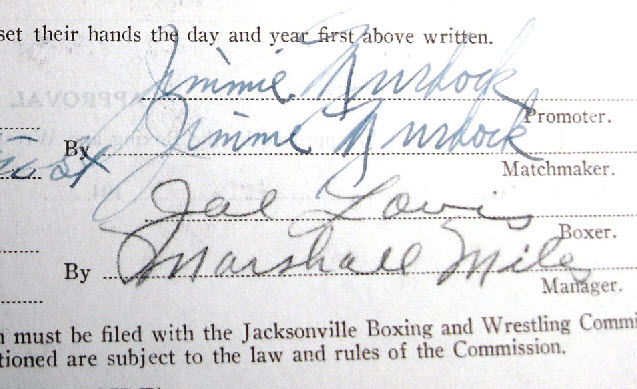 set their hands the day and year first above written.
Jimmie Murdock
Promoter.
By Jimmie Murdock
Matchmaker.
Joe Louis
Boxer.
By Marshall Miles
Manager.
must be filed with the Jacksonville Boxing and Wrestling Commi
tioned are subject to the law and rules of the Commission.